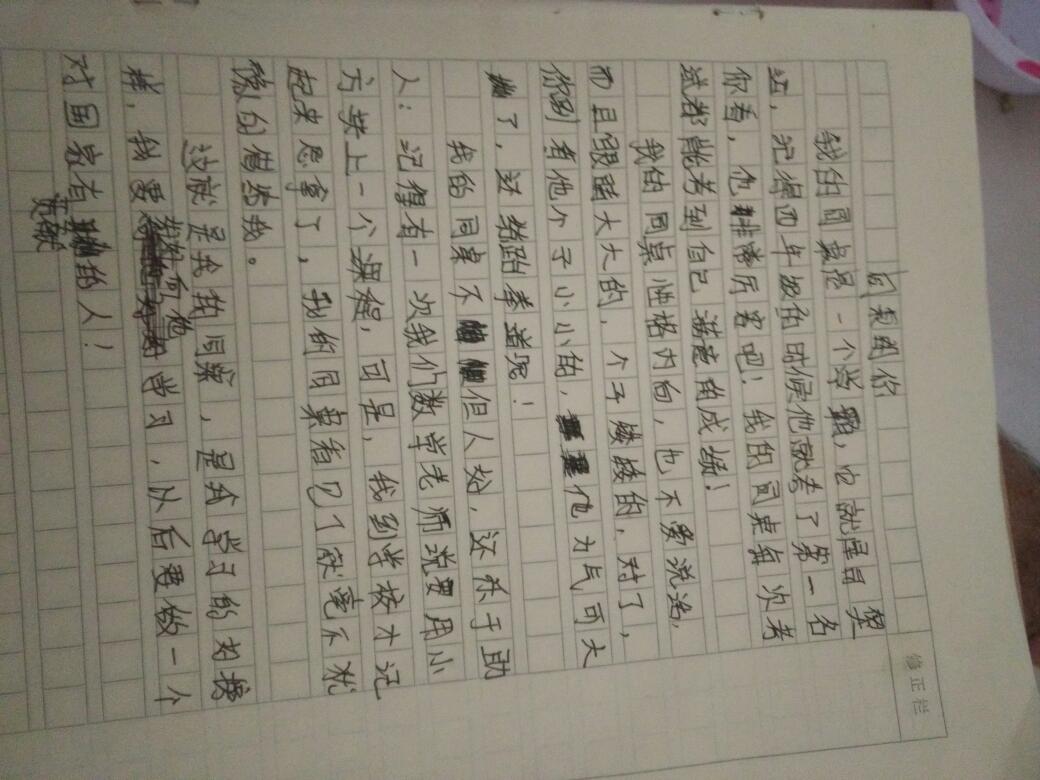 同桌的你
我的同桌是一个学霸，它就是吕奕
廷，记得四年级的时候他就考了第一名
你看，他非常厉害吧！我的同桌每次考
试都能考到自己满意的成绩！
我的同桌性格内向，也不爱说话，
而且眼睛大大的，个子矮矮的，对了，
你别看他个子小小的，他力气可大
了，还学跆拳道呢！
我的同桌不但人好，还乐于助
人：记得有一次我们数学老师说要用小
方块上一个课程，可是，我到学校才记
起来忘拿了，我的同桌看见了就毫不犹
豫的借给我。
这就是我的同桌，是我学习的榜
样，我要向他学习，从后要做一个
对国家有贡献的人！
修正栏